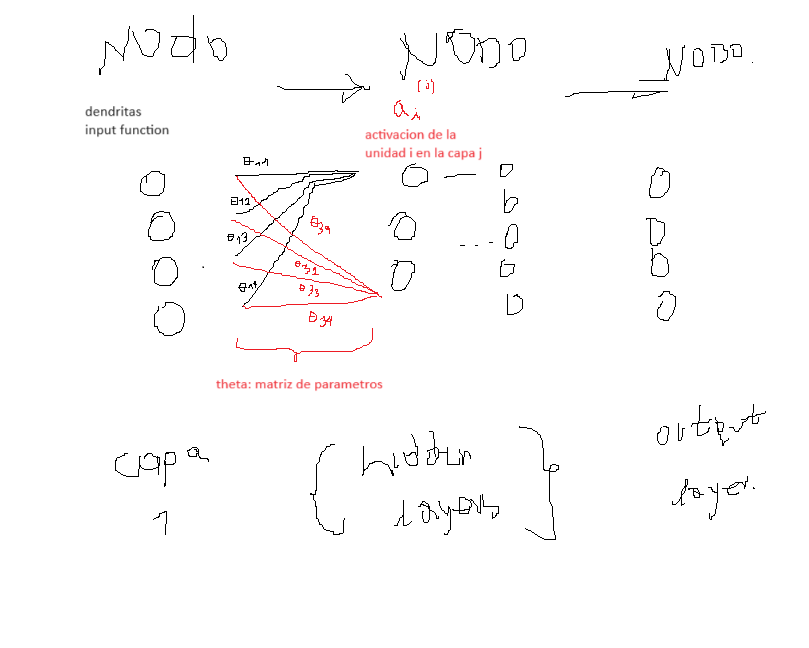 Nodo
NODO
NODO.
(j)
ai
dendritas
input function
activacion de la
unidad i en la capa j
θ11
θ12
θ13
θ14
θ31
θ32
θ33
θ34
theta: matriz de parametros
capa
1
hidden
layers
output
layer.